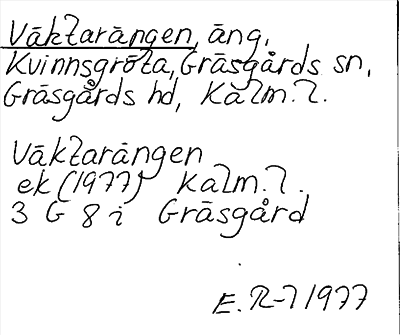 Väktarängen, äng,
Kvinnsgröta, Gräsgårds sn,
Gräsgårds hd, Kalm. l.
Väktarängen
ek (1977) Kalm. l.
3 G 8 i Gräsgård
E. R-7 1977